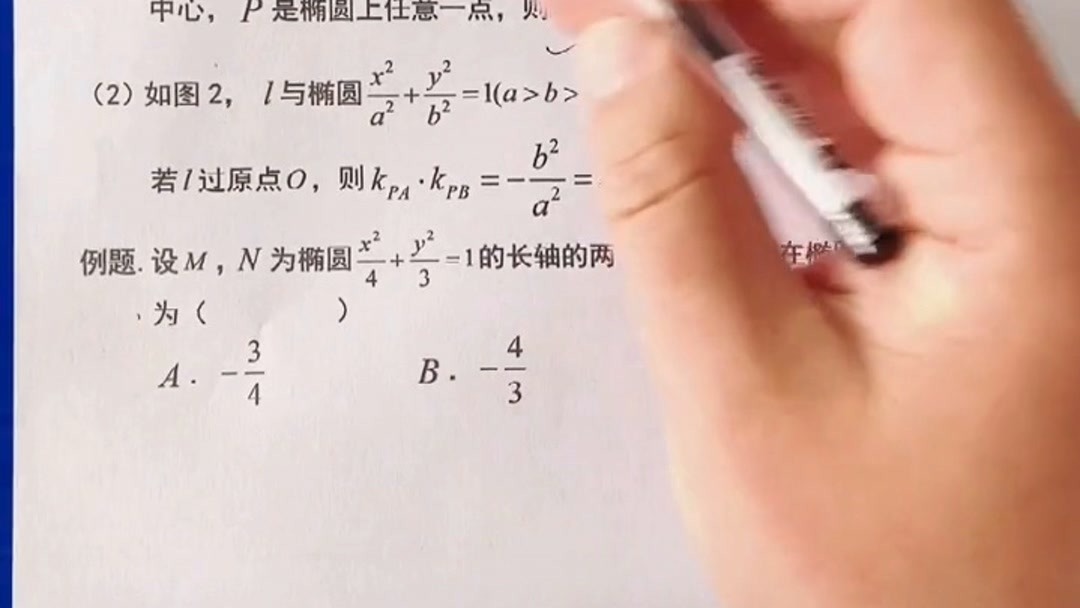 中心，P是椭圆上任意一点，则
（2）如图2， l与椭圆x²/a²+y²/b²=1(a>b>
若l过原点O，则k_PA·k_PB=-b²/a²=
例题.设M，N为椭圆x²/4+y²/3=1的长轴的两 在椭
为（ ）
A. -3/4 B. -4/3